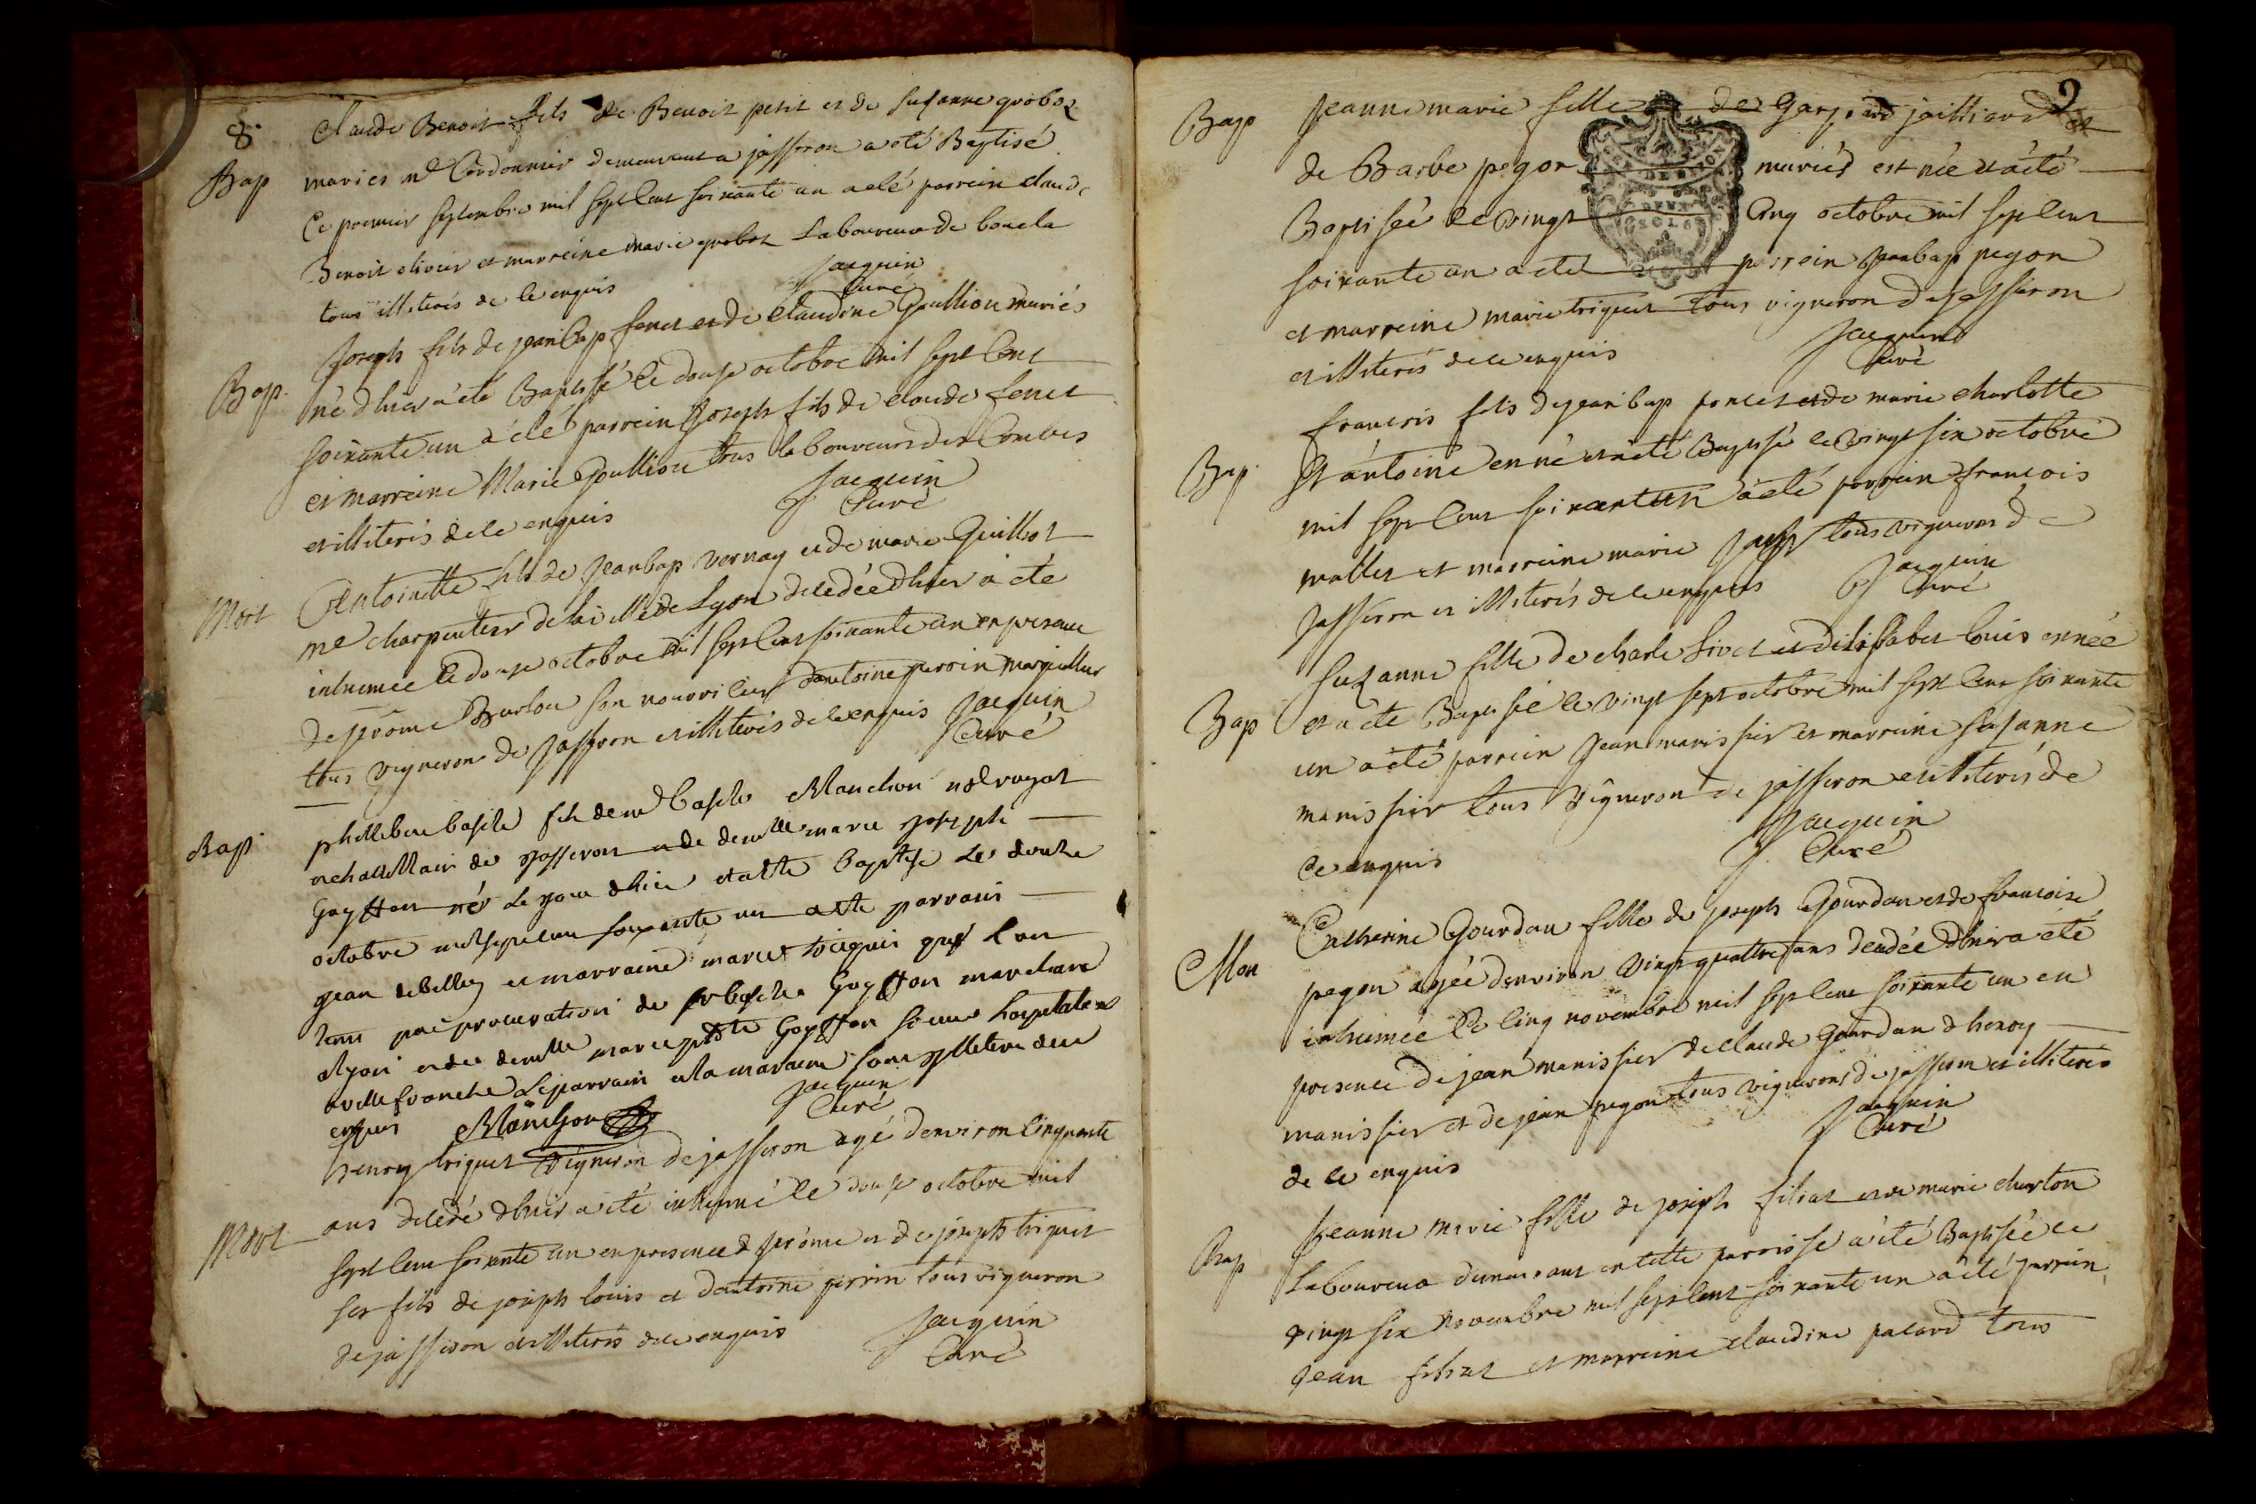 8.
Claude Benoit fils de Benoit petit et de suzanne groboz
Bap
mariés me Cordonnier demeurant a jasseron a eté Baptisé
Ce premier septembre mil sept Cent soixante un a eté parrein claude
Benoit olivier et marreine marie grobot Laboureur de
tous illiterés de le enquis
jacquin
Curé
Joseph fils de jeanbap feret et de Claudine Goullion mariés
Bap.
né dhier a eté Baptisé le douze octobre mil sept Cent
soixante un a eté parrein joseph fils de claude feret
et marreine Marie Goullion tous laboureurs des Combes
et illiterés de le enquis
Jacquin
Curé
Mort
Antoinette fille de Jeanbap vernay et de marie Guilliot
me charpentier de la ville de Lyon decedée dhier a eté
inhumée le douze octobre mil sept Cent soixante un en presence
de jérome Burlon son nourricier dantoine perrin marguillier
tous vigneron de Jasseron et illiterés de le enquis
Jacquin
Curé
Bap
philibert basile fils de me basile Manchon nore royal
et chatellain de Jasseron et de demlle marie josephte
Goyffon né le jour dhier et a ette baptisé le douze
octobre mil sept cent soixante un a ette parrain
jean debelley et marraine marie triquet qui l'ont
tenu par procuration de basile Goyffon marchand
a lyon et de demlle marie Goyffon soeur hospitaliere
a villefranche Le parrain et la marraine sont illiteré de ce
enquis
Manchon
Jacquin
Curé
henry triquet vigneron de jasseron agé denviron Cinquante
Mort
ans decédé dhier a eté inhumé le douze octobre mil
sept Cent soixante un en presence de jerome et de joseph triquet
ses fils de joseph louis et dantoine perrin tous vigneron
de jasseron et illiterés de le enquis
Jacquin
Curé
9
Bap
Jeanne marie fille de Gaspard jaillard et
de Barbe pegon mariés est née et a eté
Baptisée le vingt Cinq octobre mil sept Cent
soixante un a eté parrein jeanbap pegon
et marreine marie triquet tous vigneron de jasseron
et illiterés de le enquis
Jacquin
Curé
francois fils de jeanbap poncet et de marie charlotte
Bap.
St antoine en né et a eté Baptisé le vingt six octobre
mil sept Cent soixante un a eté parrein françois
mallet et marreine marie tous vignerons de
jasseron et illiterés de le enquis
Jacquin
Curé
Suzanne fille de charle Livet et delisabet louis en née
Bap
et a eté Baptisée le vingt sept octobre mil sept Cent soixante
un a eté parrein Jean manissier et marreine suzanne
manissier tous Vigneron de jasseron et illiterés de
le enquis
Jacquin
Curé
Catherine Gourdan fille de joseph Gourdan et de francoise
Mor
pegon agée denviron vingt quattre ans decedée dhier a eté
inhumée le Cinq novembre mil sept Cent soixante un en
presence de jean manissier de claude Gourdan dhenry
manissier et de jean pegon tous vignerons de jasseron et illiterés
de le enquis
Jacquin
Curé
Jeanne marie fille de joseph filiat et de marie charton
Bap
Laboureur demeurant en cette parroisse a eté Baptisée le
vingt six Novembre mil sept Cent soixante un a eté parrein
jean filiat et marreine claudine pacard tous